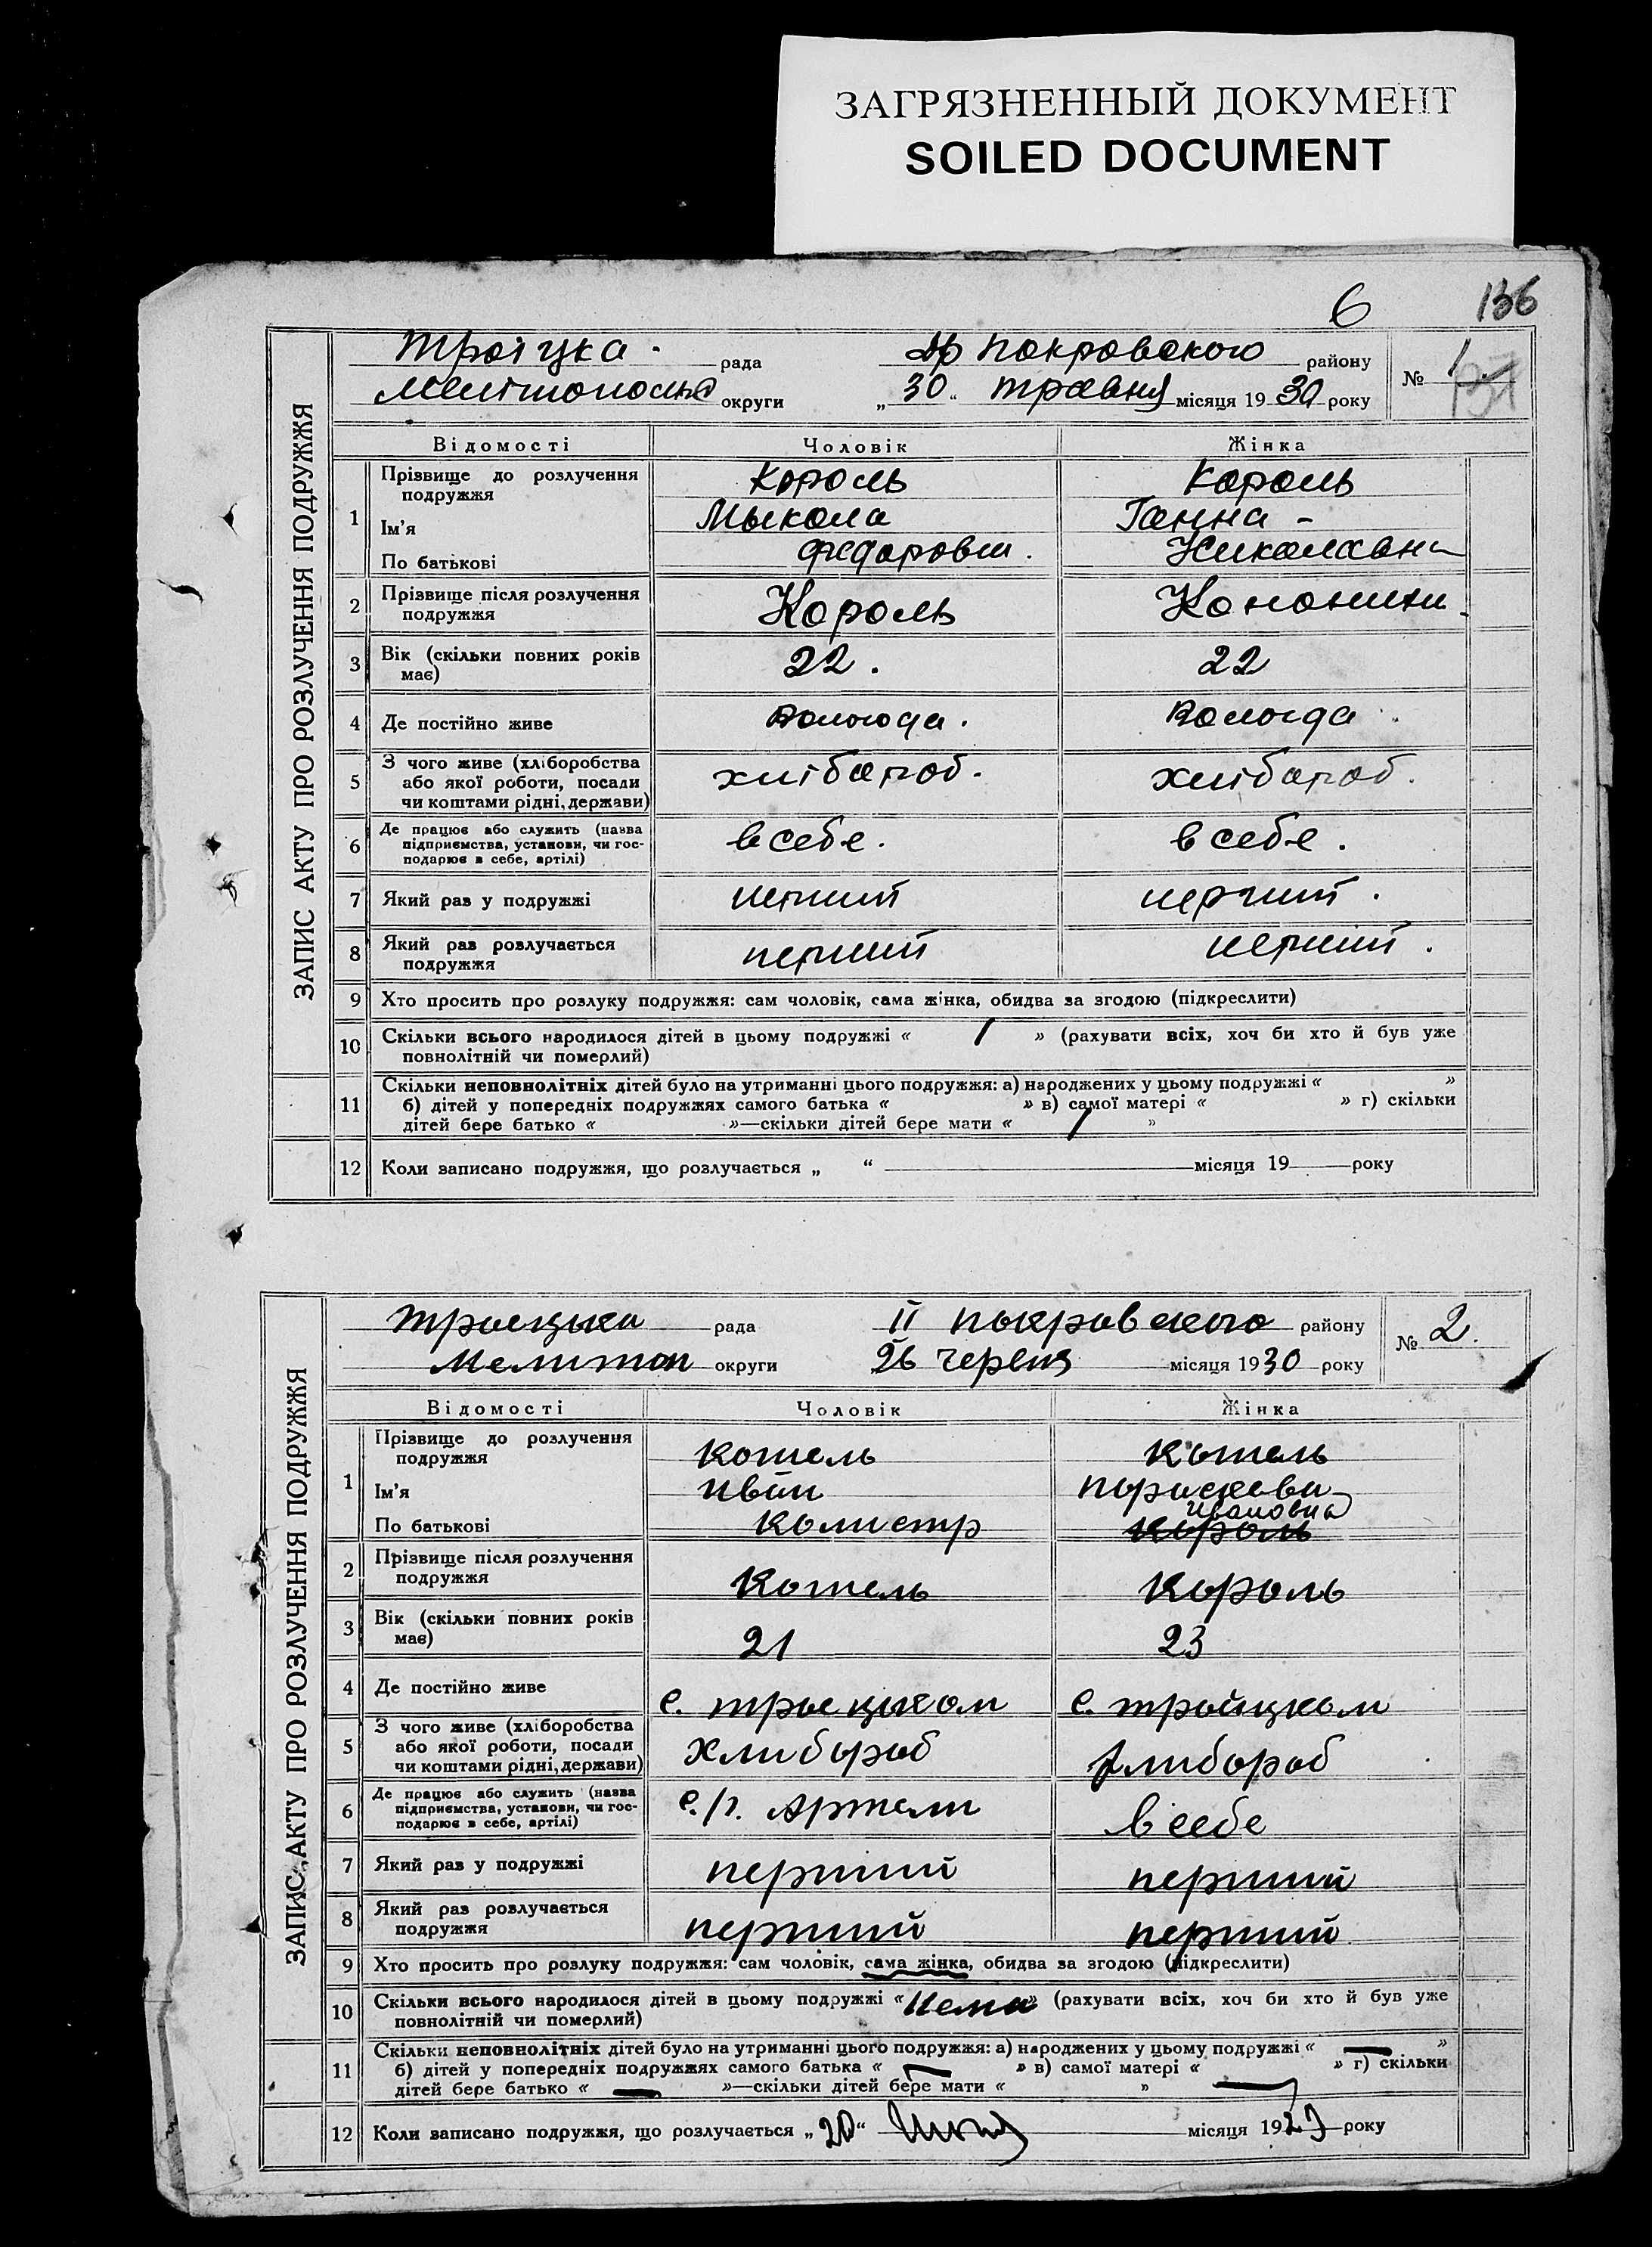 ЗАГРЯЗНЕННЫЙ ДОКУМЕНТ
SOILED DOCUMENT
6 136
ЗАПИС АКТУ ПРО РОЗЛУЧЕННЯ ПОДРУЖЖЯ
Троіцка рада Покровского району № 1
округи „30“ травня місяця 1930 року
Відомості Чоловік Жінка
1 Прізвище до розлучення подружжя Король Король
Ім'я Мыкола Ганна
По батькові Федорович
2 Прізвище після розлучення подружжя Король
3 Вік (скільки повних років має) 22. 22
4 Де постійно живе Вологда
5 З чого живе (хліборобства або якої роботи, посади чи коштами рідні, держави) хлібороб. хлібороб.
6 Де працює або служить (назва підприємства, установи, чи господарює в себе, артілі) в себе. в себе.
7 Який раз у подружжі перший перший.
8 Який раз розлучається подружжя перший перший.
9 Хто просить про розлуку подружжя: сам чоловік, сама жінка, обидва за згодою (підкреслити)
10 Скільки всього народилося дітей в цьому подружжі « 1 » (рахувати всіх, хоч би хто й був уже
повнолітній чи померлий)
11 Скільки неповнолітніх дітей було на утриманні цього подружжя: а) народжених у цьому подружжі « »
б) дітей у попередніх подружжях самого батька « » в) самої матері « » г) скільки
дітей бере батько « »—скільки дітей бере мати « 1 »
12 Коли записано подружжя, що розлучається „ “ місяця 19 року
ЗАПИС АКТУ ПРО РОЗЛУЧЕННЯ ПОДРУЖЖЯ
Троецька рада II Покровского району № 2.
Мелитоп округи 26 Червня місяця 1930 року
Відомості Чоловік Жінка
1 Прізвище до розлучення подружжя Котель Котель
Ім'я Иван
Ивановна
По батькові Калистр Король
2 Прізвище після розлучення подружжя Котель Король
3 Вік (скільки повних років має) 21 23
4 Де постійно живе с. Троецком с. Тройцком
5 З чого живе (хліборобства або якої роботи, посади чи коштами рідні, держави) Хлибороб Хлибороб
6 Де працює або служить (назва підприємства, установи, чи господарює в себе, артілі) Артели в себе
7 Який раз у подружжі перший перший
8 Який раз розлучається подружжя перший перший
9 Хто просить про розлуку подружжя: сам чоловік, сама жінка, обидва за згодою (підкреслити)
10 Скільки всього народилося дітей в цьому подружжі «Нема» (рахувати всіх, хоч би хто й був уже
повнолітній чи померлий)
11 Скільки неповнолітніх дітей було на утриманні цього подружжя: а) народжених у цьому подружжі « — »
б) дітей у попередніх подружжях самого батька « — » в) самої матері « » г) скільки
дітей бере батько « — »—скільки дітей бере мати « » —
12 Коли записано подружжя, що розлучається „20“ місяця 1929 року